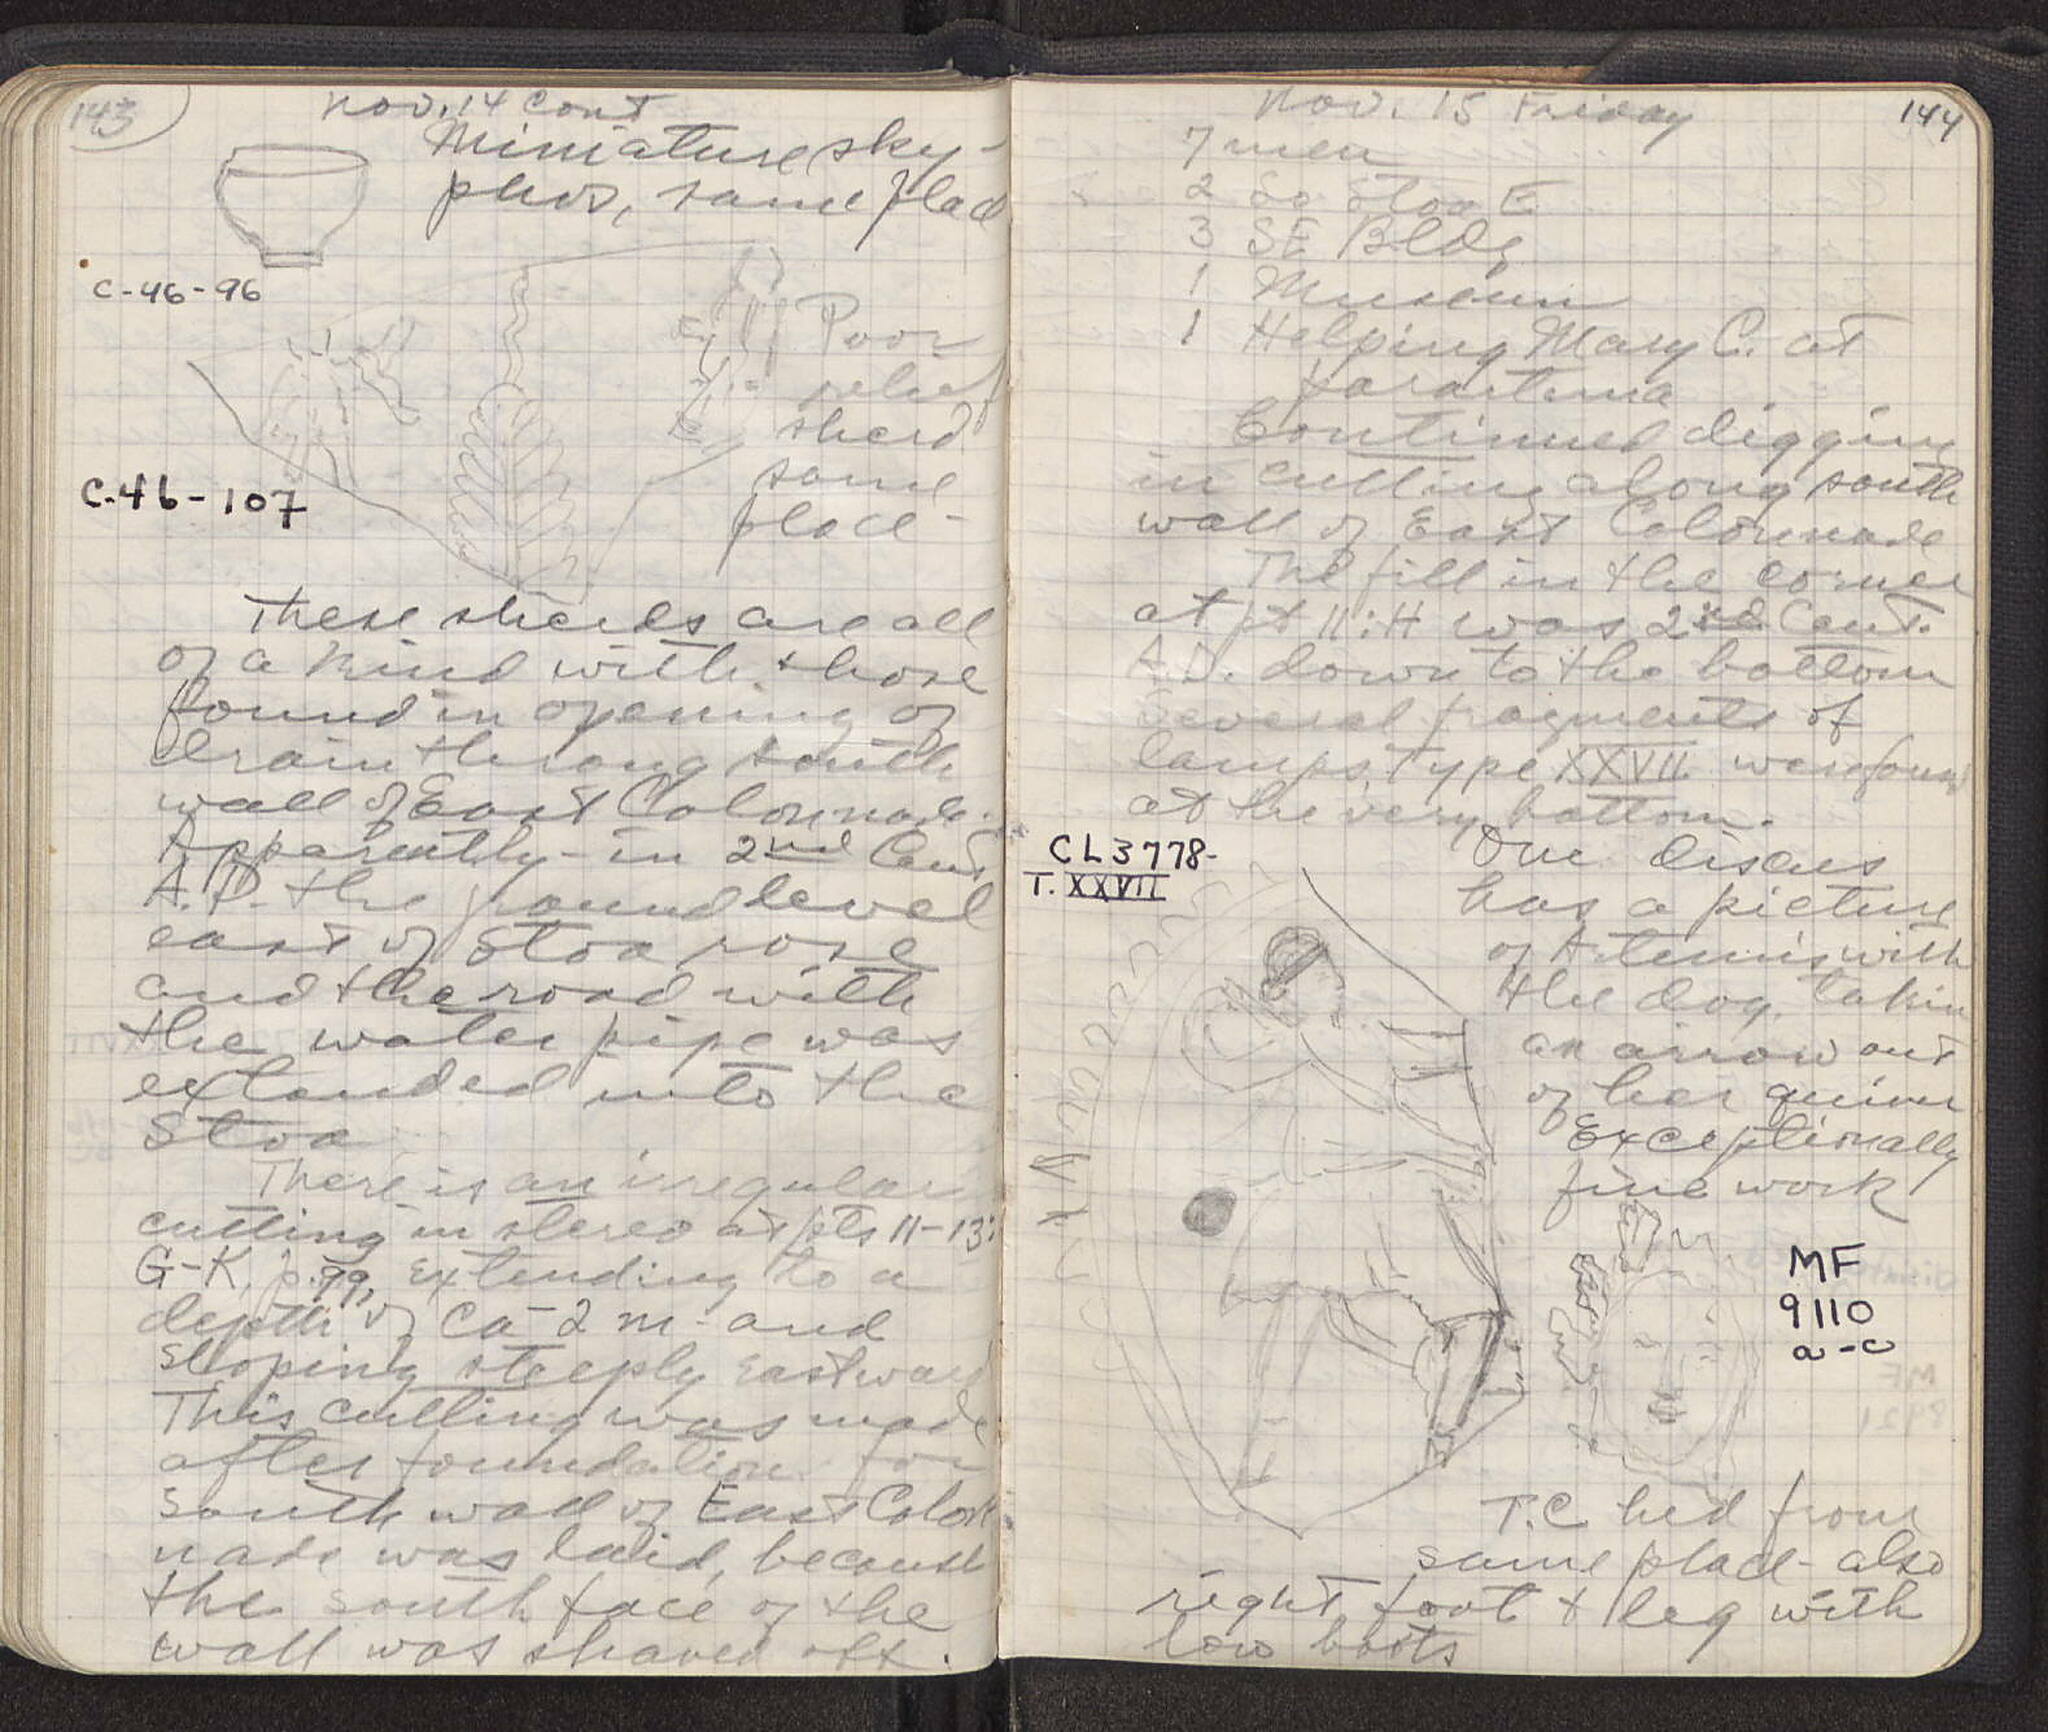 143
Nov. 14 Cont
Miniature sky-
phos, same place
C-46-96
Poor
relief
sherd
same
place-
C-46-107
These sherds are all
of a kind with those
found in opening of
drain through south
wall of East Colonnade.
Apparently - in 2nd Cent.
A.D. the ground level
east of Stoa rose
and the road with
the water pipe was
extended into the
Stoa
There is an irregular
cutting in stereo at pts 11-13:
G-K, p.99, extending to a
depth of ca 2 m. and
sloping steeply eastward
This cutting was made
after foundation for
south wall of East Colon-
nade was laid, because
the south face of the
wall was shaved off.
144
Nov. 15 Friday
7 men
2 So Stoa E
3 SE Bldg
1 Museum
1 Helping Mary C. at
Continued digging
in cutting along south
wall of East Colonnade
The fill in the corner
at pt 11:H was 2nd Cent.
A.D. down to the bottom
Several fragments of
lamps, type XXVII were found
at the very bottom.
CL3778-
T. XXVII
One discus
has a picture
of Artemis with
the dog, takin
an arrow out
of her quiver
Exceptionally
fine work
MF
9110
a-c
T.C. hed from
same place - also
right foot + leg with
low boots